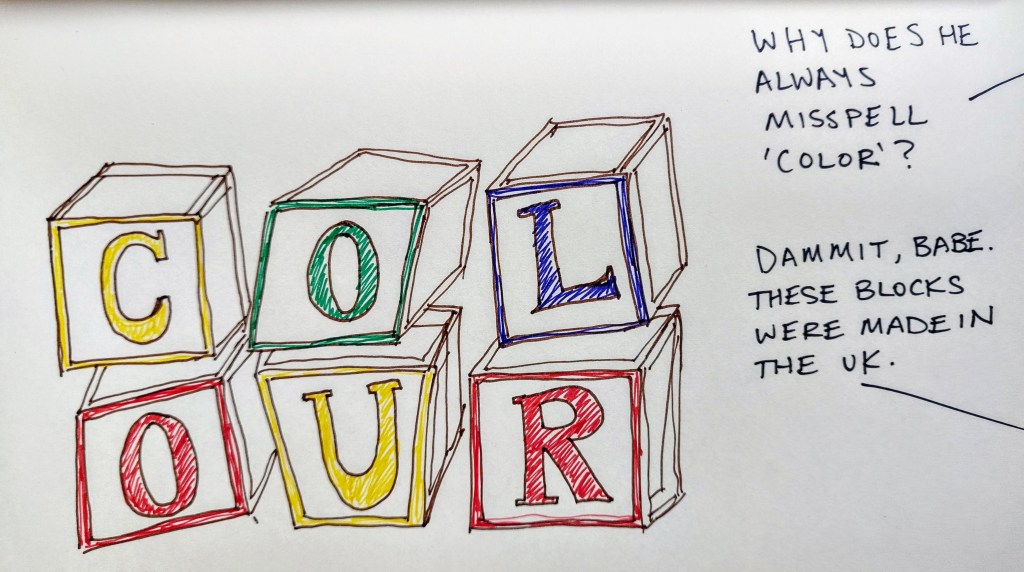 WHY DOES HE
ALWAYS
MISSPELL
'COLOR'?
COL
OUR
DAMMIT, BABE.
THESE BLOCKS
WERE MADE IN
THE UK.